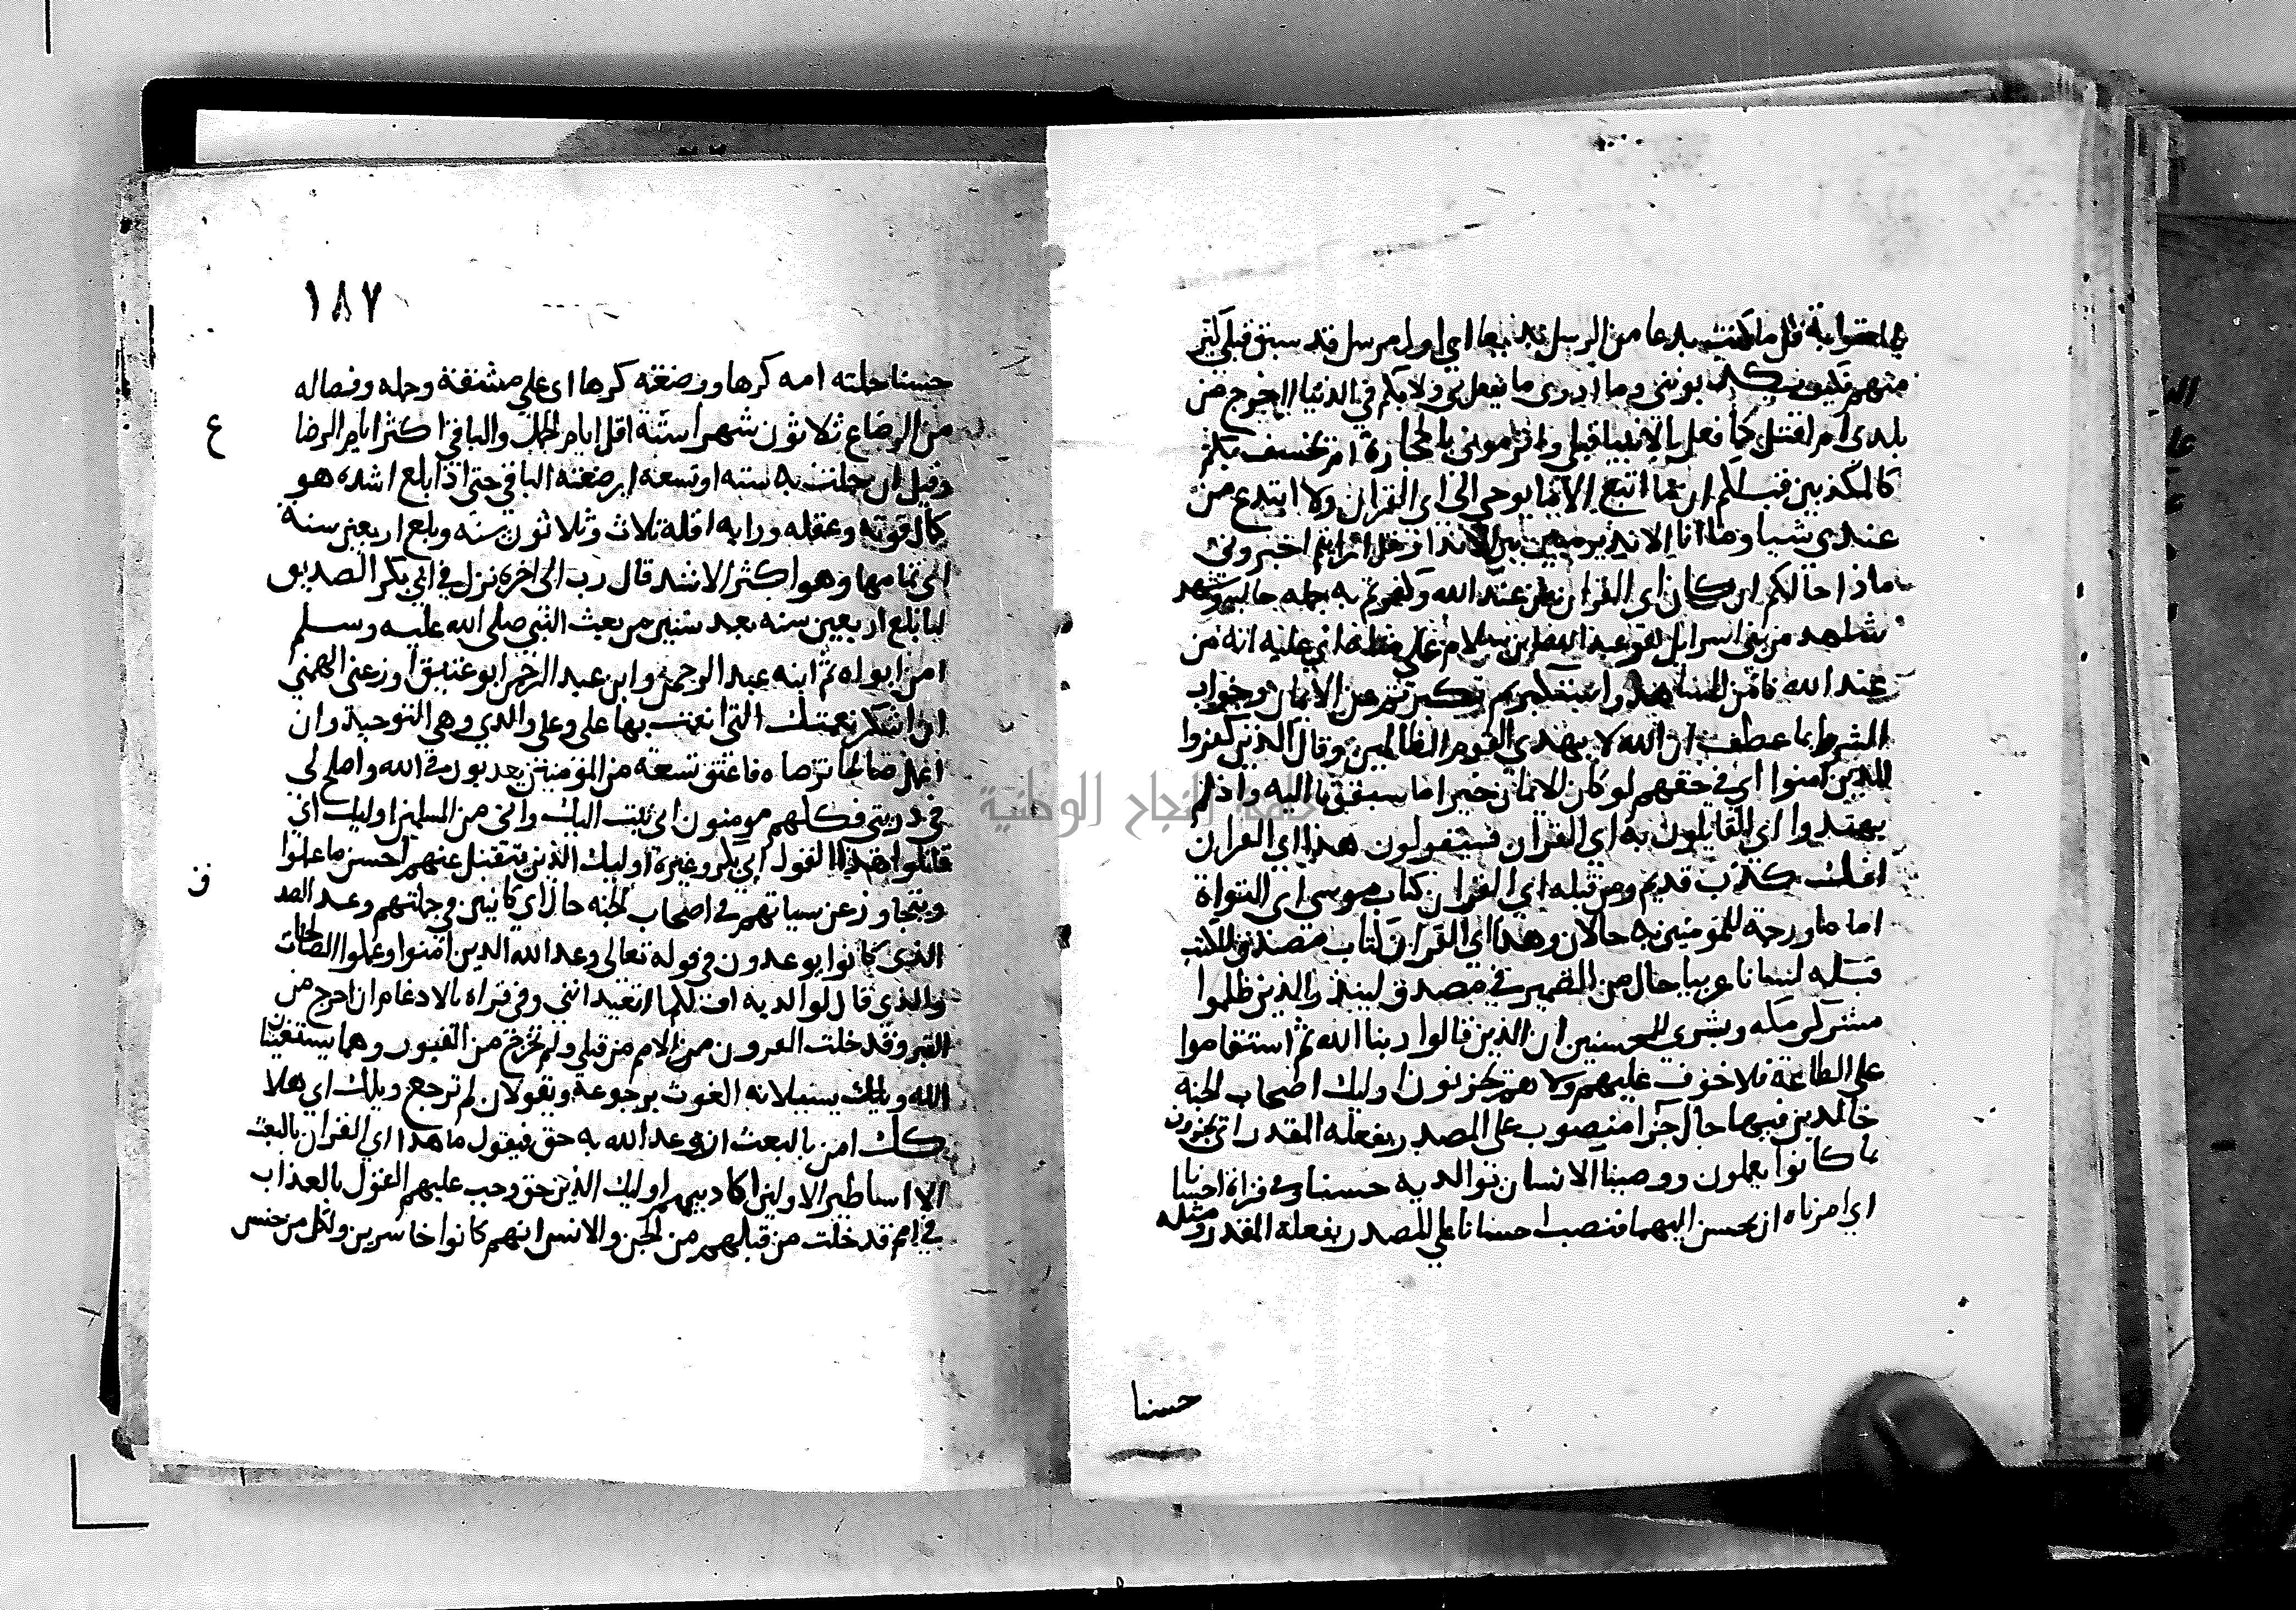 قل ما كنت بدعا من الرسل بديعا اي اول مرسل قد سبق قبلي كثير
منهم فكيف تكذبونني وما ادري ما يفعل بي ولا بكم في الدنيا الخروج من
بلدي ام اقتل كما فعل بالانبيا قبلي واترموني بالحجارة ام يخسف بكم
كالمكذبين قبلكم ان ما اتبع الا ما يوحي الي اي القران ولا ابتدع من
عندي شيا وما انا الا نذير مبين بين الانذار قل ارايتم اخبروني
ماذا حالكم ان كان اي القران من عند الله وكفرتم به جمله حاليه وشهد
شاهد من بني اسرايل هو عبد الله بن سلام علي مثله اي عليه انه من
عند الله فامن الشاهد واستكبرتم تكبرتم عن الايمان وجواب
الشرط بما عطف ان الله لا يهدي القوم الظالمين وقال الذين كفروا
للذين امنوا اي في حقهم لو كان الايمان خيرا ما سبقونا اليه واذ لم
يهتدوا اي القايلون به اي القران فسيقولون هذا اي القران
افك كذب قديم ومن قبله اي القران كتاب موسي اي التواة
اماما ورحمة للمومنين به حالان وهذا اي القران كتاب مصدق للكتب
قبله لسانا عربيا حال من الضمير في مصدق لينذر الذين ظلموا
مشركي مكه وبشري للمحسنين ان الذين قالوا ربنا الله ثم استقاموا
علي الطاعة فلا خوف عليهم ولا هم يحزنون اوليك اصحاب الجنه
خالدين فيها حال جزا منصوب علي المصدر بفعله المقدر اي يجزون
بما كانوا يعملون ووصينا الانسان بوالديه حسنا وفي قراة احسانا
اي امرناه ان يحسن اليهما فنصب احسانا علي المصدر بفعله المقدر ومثله
حسنا
١٨٧
حسنا حملته امه كرها ووضعته كرها اي علي مشقة وحمله وفصاله
من الرضاع ثلاثون شهرا ستة اقل ايام الحمل والباقي اكثر ايام الرضا
ع
وقيل ان حملت به ستة او تسعه ارضعته الباقي حتي اذا بلغ اشده هو
كمال قوته وعقله ورايه اقله ثلاث وثلاثون سنه وبلغ اربعين سنة
اي تمامها وهو اكثر الاشد قال رب الي اخره نزل في ابي بكر الصديق
لما بلغ اربعين سنه بعد سنتين من بعث النبي صلي الله عليه وسلم
امن ابواه ثم ابنه عبد الرحمن وابن عبد الرحمن ابو عتيق اوزعني الهمني
ان اشكر نعمتك التي انعمت بها علي وعلي والدي وهي التوحيد وان
اعمل صالحا ترضاه فاعتق تسعة من المومنين يعذبون في الله واصلح لي
في ذريتي فكلهم مومنون اني تبت اليك واني من المسلمين اوليك اي
قايلوا هذا القول ابي بكر وغيره اوليك الذين يتقبل عنهم احسن ما عملوا
ويتجاوز عن سياتهم في اصحاب الجنه حال اي كاينين في جملتهم وعد الصد
ق
الذي كانوا يوعدون في قوله تعالي وعد الله الذين امنوا وعملوا الصالحات
والذي قال لوالديه اف لكما اتعدانني وفي قراه بالادغام ان اخرج من
القبر وقد خلت القرون من الامم من قبلي ولم تخرج من القبور وهما يستغيثان
الله ويلك يسيلانه الغوث برجوعه ويقولان لم ترجع ويلك اي هلا
كك امن بالبعث ان وعد الله به حق فيقول ما هذا اي القران بالبعث
الا اساطير الاولين اكاذيبهم اوليك الذين حق وجب عليهم القول بالعذاب
في امم قد خلت من قبلهم من الجن والانس انهم كانوا خاسرين ولكل من جنس
جامعة النجاح الوطنية